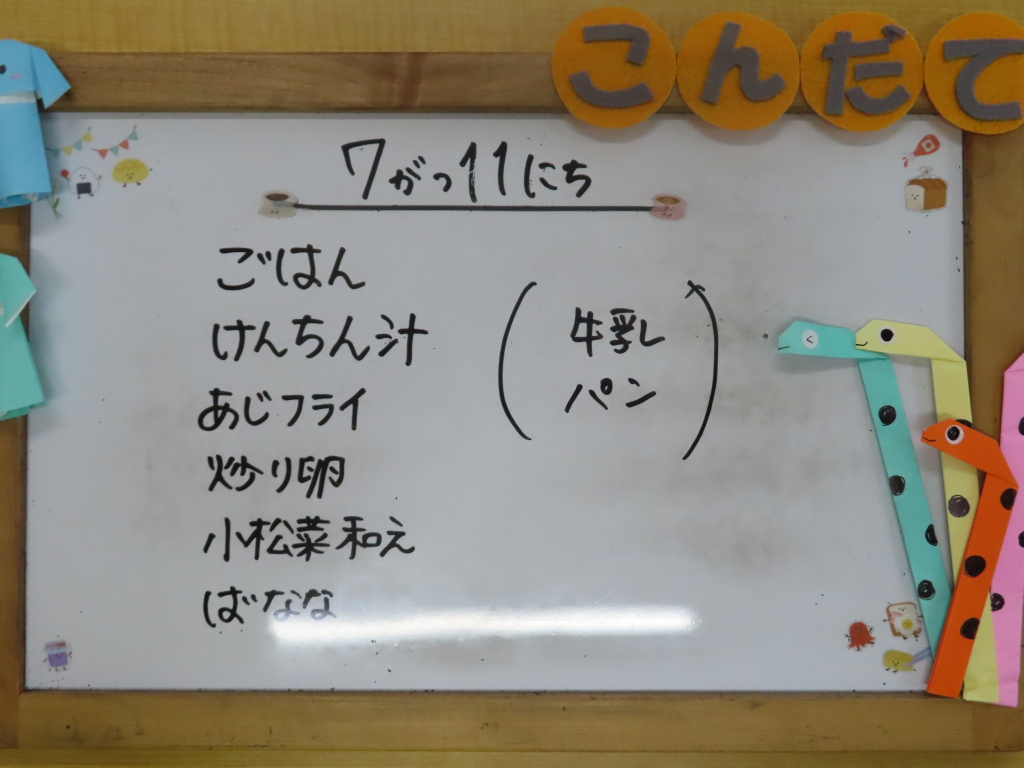 こんだて
7がつ11にち
ごはん
けんちん汁
あじフライ
炒り卵
小松菜和え
ばなな
(牛乳
パン)